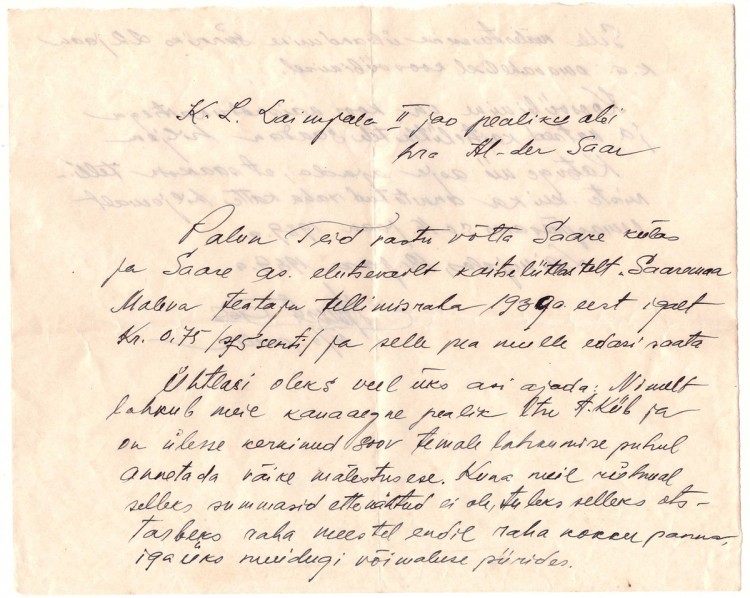 K. L. Laimjala II jao pealiku abi
hra Al-der Saar
Palun Teid vastu võtta Saare külas
ja Saare as. elutsevailt kaitseliitlastelt "Saaremaa
Maleva Teataja tellimisraha 1939a. eest igalt
Kr. 0,75 /75 senti/ ja selle pea meelle edasi saata
Ühtlasi oleks veel üks asi ajada: Nimelt
lahkub meil kauaaegne pealik ltn A. Küb ja
on ülesse kerkinud soov temale lahkumise puhul
annetada väike mälestusese. Kuna meil
selleks summasid ettenähtud ei ole, tuleks selleks ots-
tarbeks raha meestel endil raha kokku panna,
igaüks muidugi võimaluse piirides.